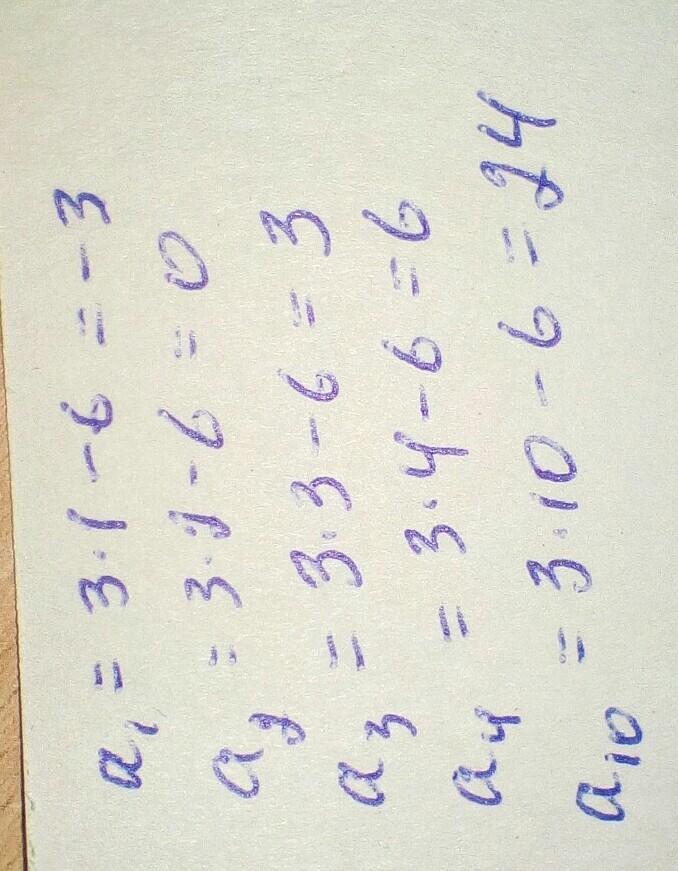 a₁ = 3·1-6 = -3
a₂ = 3·2-6 = 0
a₃ = 3·3-6 = 3
a₄ = 3·4-6 = 6
a₁₀ = 3·10-6 = 24